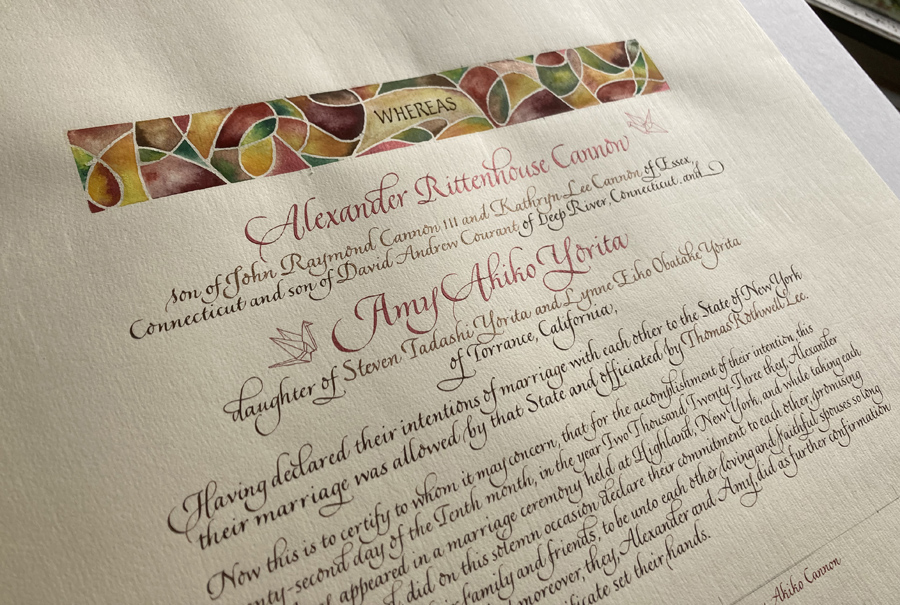 WHEREAS
Alexander Rittenhouse Cannon
son of John Raymond Cannon III and Kathryn Lee Cannon of Essex,
Connecticut and son of David Andrew Courant of Deep River, Connecticut and
Amy Akiko Yorita
daughter of Steven Tadashi Yorita and Lynne Eiko Obatake Yorita
of Torrance, California;
Having declared their intentions of marriage with each other to the State of New York
their marriage was allowed by that State and officiated by Thomas Rothwell Lee.
Now this is to certify to whom it may concern, that for the accomplishment of their intention, this
nty-second day of the Tenth month, in the year Two Thousand Twenty-Three they, Alexander
appeared in a marriage ceremony held at Highland, New York, and while taking each
did on this solemn occasion declare their commitment to each other, promising
family and friends, to be unto each other loving and faithful spouses so long
moreover, they, Alexander and Amy, did as further confirmation
ificate set their hands.
Akiko Cannon